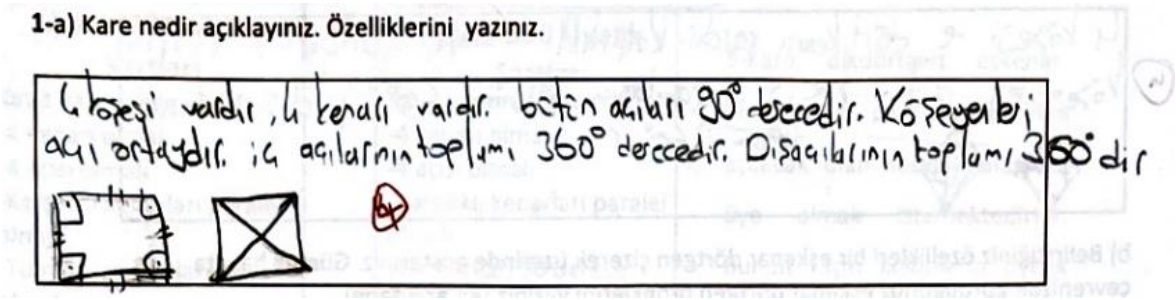 1-a) Kare nedir açıklayınız. Özelliklerini yazınız.
4 köşesi vardır, 4 kenarı vardır. bütün açıları 90° derecedir. Köşegenleri
açı ortaydır. iç açılarının toplamı 360° derecedir. Dış açılarının toplamı 360° dir